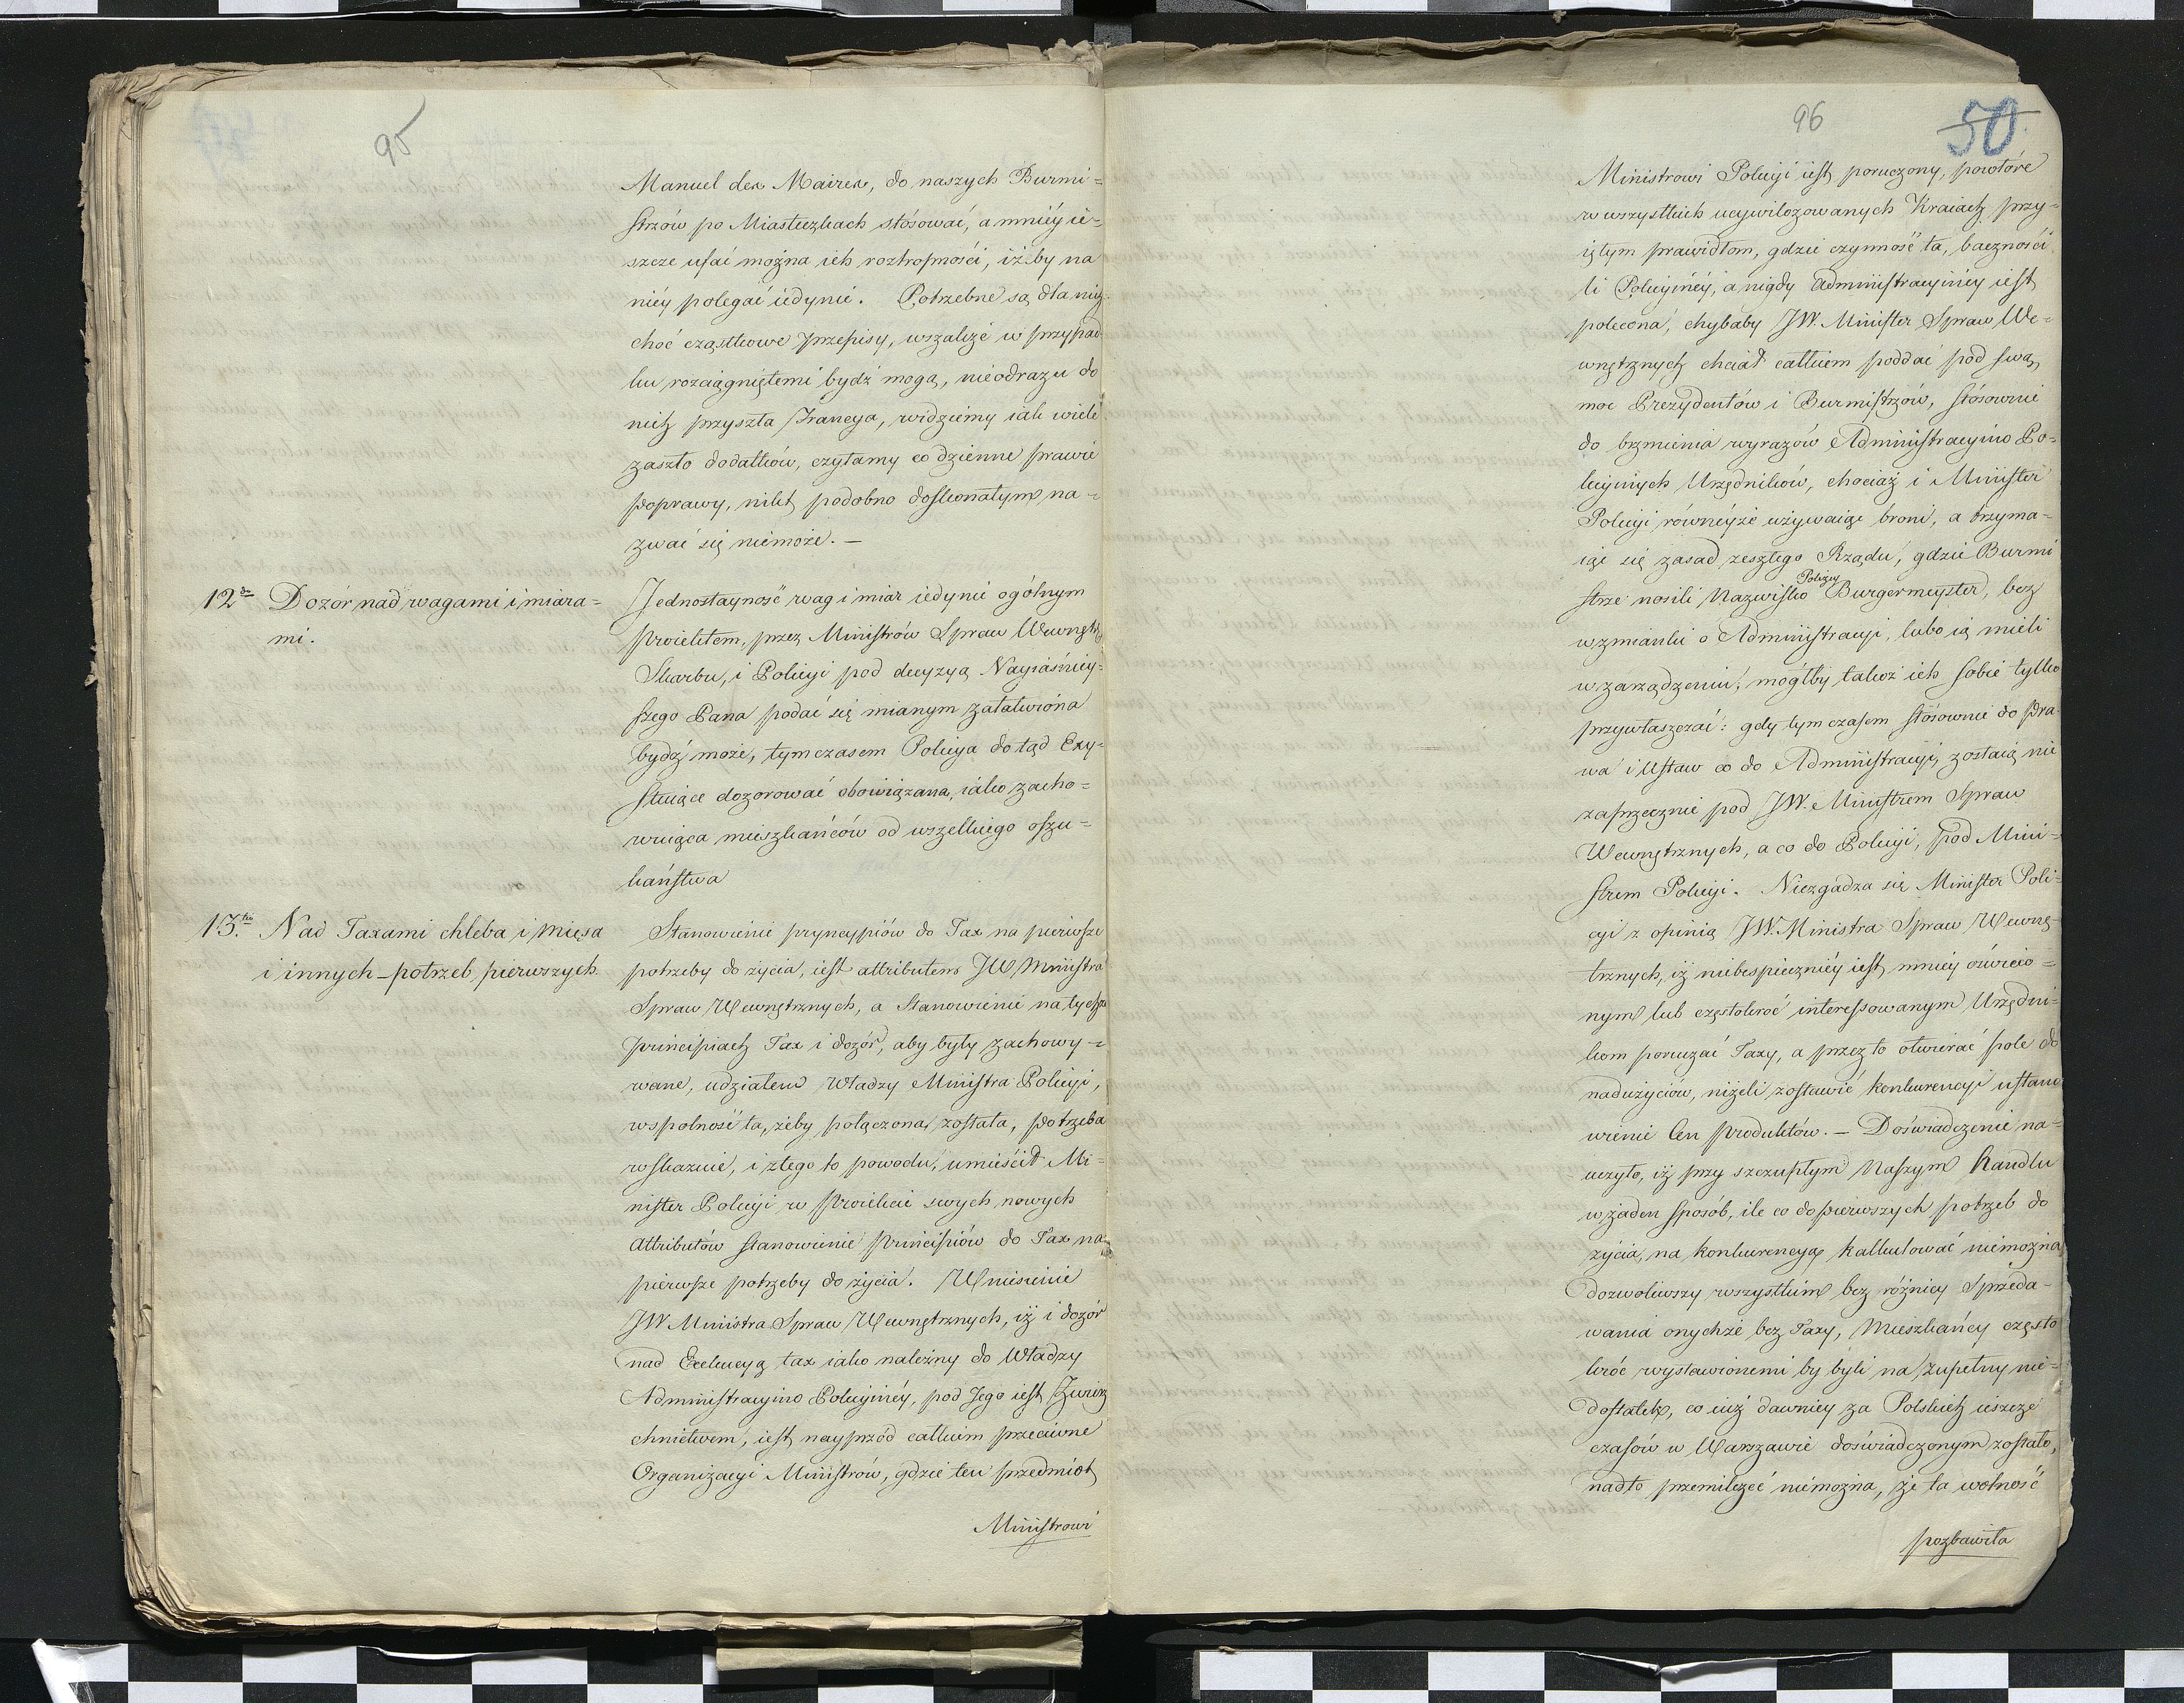 95
Manuel des Maires, do naszych Burmi=
strzów po Miasteczkach stósować, a mniéy ie=
szcze ufać można ich roztropności, iżby na
niéy polegać iedynie. Potrzebne są dla nich
choć cząstkowe przepisy, wszakże w przypad
ku rozciągniętemi bydź mogą, nieodrazu do
nich przyszła Francya, widziemy iak wiele
zaszło dodatków, czytamy codzienne prawie
poprawy, nikt podobno doskonałym na=
zwać się niemoże. —
12e Dozór nad wagami i miara=
mi.
Jednostayność wag i miar iedynie ogólnym
Proiektem, przez Ministrów Spraw Wewnętr
Skarbu, i Policyi pod decyzyą Nayiaśniey=
szego Pana podać się mianym załatwiona
bydź może, tymczasem Policya dotąd Exy=
stuiące dozorować obowiązana, iako zacho=
wuiąca mieszkańców od wszelkiego oszu=
kaństwa
13. Nad Taxami chleba i mięsa
i innych potrzeb pierwszych.
Stanowienie pryncypiów do Tax na pierwsze
potrzeby do życia, iest attributem JW Ministra
Spraw Wewnętrznych, a Stanowienie na tychże
principiach Tax i dozór, aby były zachowy=
wane, udziałem Władzy Ministra Policyi,
wspolność ta, żeby połączona została, potrzeba
wskazuie, i ztego to powodu, umieścił Mi=
nister Policyi w Proiekcie swych nowych
Attributów stanowienie principiów do Tax na
pierwsze potrzeby do życia. Wniesienie
JW Ministra Spraw Wewnętrznych, iż i dozór
nad Exekucyą tax iako należny do Władzy
Administracyino Policyinéy, pod Jego iest Zwierz
chnictwem, iest nayprzód całkiem przeciwne
Organizacyi Ministrów, gdzie ten przedmiot
Ministrowi
96
50
Ministrowi Policyi iest poruczony, powtóre
w wszystkich ucywilozowanych Kraiach przy=
iętym prawidłom, gdzie czynność ta, baczności
li Policyinéy, a nigdy Administracyinéy iest
polecona, chybaby JW. Minister Spraw We=
wnętrznych chciał całkiem poddać pod swą
moc Prezydentów i Burmistrzów, stósownie
do brzmienia wyrazów Administracyino Po=
licyinych Urzędników, chociaż i Minister
Policyi równeyże używaiąc broni, a trzyma=
iąc się zasad zeszłego Rządu, gdzie Burmi
strze nosili Nazwisko Policzey Burgermeyster, bez
wzmianki o Administracyi, lubo ią mieli
w zarządzeniu, mógłby także ich sobie tylko
przywłaszczać: gdy tymczasem stósownie do pra
wa i Ustaw co do Administracyi, zostaią nie
zaprzecznie pod JW. Ministrem Spraw
Wewnętrznych, a co do Policyi, pod Mini=
strem Policyi. Niezgadza się Minister Poli=
cyi z opinią JW. Ministra Spraw Wewnę=
trznych, iż niebespieczniéy iest, mniéy oświeco=
nym lub częstokroć interessowanym Urzędni=
kom poruczać Taxy, a przez to otwierać pole do
nadużyciów, niżeli zostawić konkurencyi ustano
wienie Cen produktów. — Doświadczenie na=
uczyło, iż przy szczupłym Naszym handlu
w żaden sposób, ile co do pierwszych potrzeb do
życia, na konkurencyą kalkulować niemożna
dozwoliwszy wszystkim bez różnicy Sprzeda=
wania onychże bez Taxy, Mieszkańcy często
kroć wystawionemi by byli na zupełny nie=
dostatek, co iuż dawniey za Polskich ieszcze
czasów w Warszawie doświadczonym zostało,
nadto przemilczeć niemożna, że ta wolność
pozbawiła